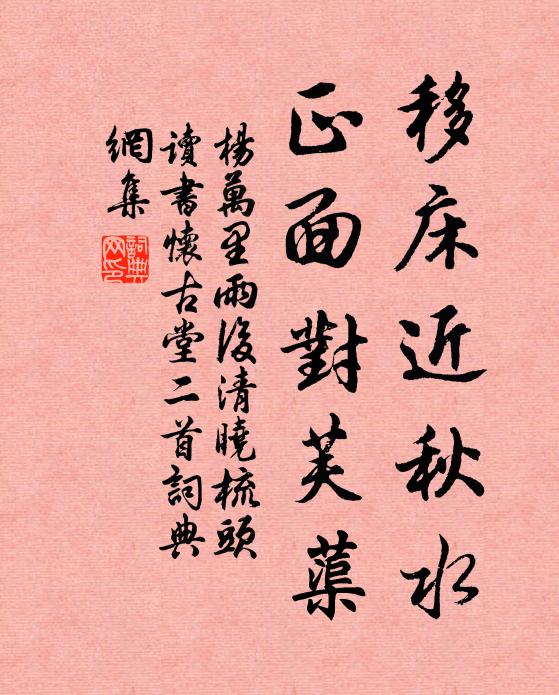 移床近秋水
正面對芙蕖
楊萬里雨後清曉梳頭
讀書懷古堂二首詞典
網集
詞典网印